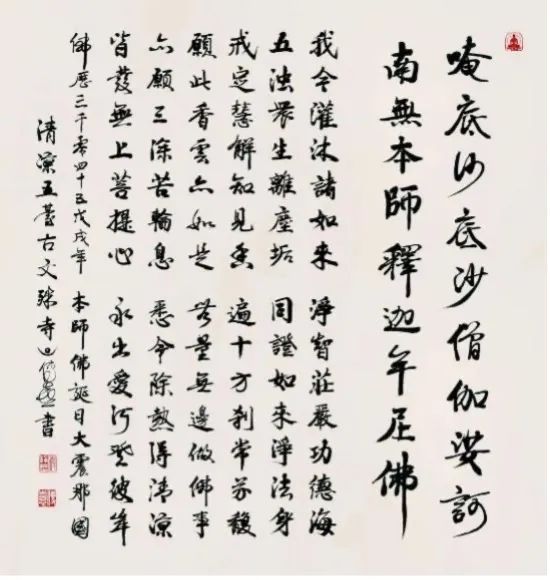 唵底沙底沙僧伽娑訶
南無本師釋迦牟尼佛
我今灌沐諸如來 淨智莊嚴功德海
五濁衆生離塵垢 同證如來淨法身
戒定慧解知見香 遍十方刹常芬馥
願此香雲亦如是 無量無邊做佛事
亦願三涂苦輪息 悉令除熱得清涼
皆發無上菩提心 永出愛河登彼岸
佛歷三千零四十五戊戌年 本師佛誕日大震那國
清涼五臺古文殊寺 書